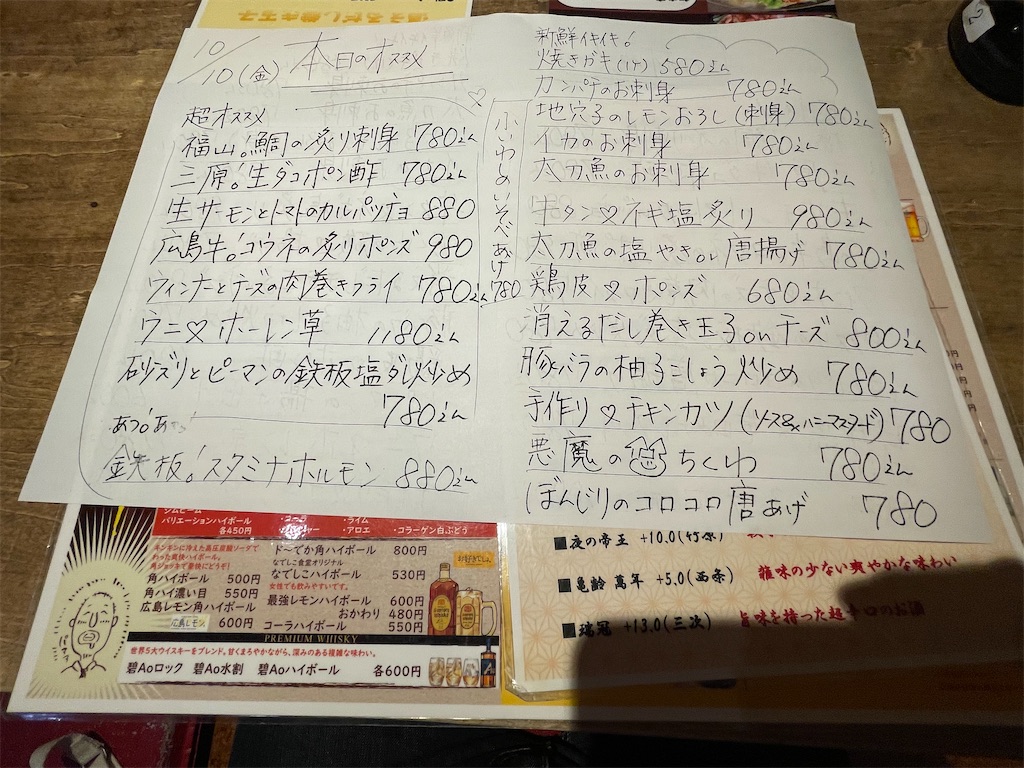 10/10(金) 本日のオススメ
超オススメ
福山!鯛の炙り刺身 780えん
三原!生ダコポン酢 780えん
生サーモンとトマトのカルパッチョ 880
広島牛!コウネの炙りポンズ 980
ウィンナーとチーズの肉巻きフライ 780えん
ウニ♡ホーレン草 1180えん
砂ズリとピーマンの鉄板塩ダレ炒め
780えん
あつ!あつ!
鉄板!スタミナホルモン 880えん
小いわしのいそべあげ 780
新鮮イキイキ!
焼きガキ(1ケ) 580えん
カンパチのお刺身 780えん
地穴子のレモンおろし(刺身) 780えん
イカのお刺身 780えん
太刀魚のお刺身 780えん
牛タン♡ネギ塩炙り 980えん
太刀魚の塩やきor唐揚げ 780えん
鶏皮♡ポンズ 680えん
消えるだし巻き玉子onチーズ 800えん
豚バラの柚子こしょう炒め 780えん
手作り♡チキンカツ(ソース&ハニーマスタード) 780
悪魔のちくわ 780えん
ぼんじりのコロコロ唐あげ 780
ジムビーム
バリエーションハイボール
各450円
・コーラ ・ライム
・アロエ ・コラーゲン白ぶどう
キンキンに冷えた高圧炭酸ソーダで
わった爽快ハイボール。
角ジョッキで豪快にどうぞ!
角ハイボール 500円
角ハイ濃い目 550円
広島レモン角ハイボール
広島レモン 600円
ド〜でか角ハイボール 800円
なでしこ食堂オリジナル
なでしこハイボール 530円
女性でも飲みやすいです。
最強レモンハイボール 600円
おかわり 480円
コーラハイボール 550円
PREMIUM WHISKY
世界5大ウイスキーをブレンド。甘くまろやかながら、深みのある複雑な味わい。
碧Aoロック 碧Ao水割 碧Aoハイボール 各600円
■夜の帝王 +10.0(竹原)
■亀齢 萬年 +5.0(西条) 雑味の少ない爽やかな味わい
■瑞冠 +13.0(三次) 旨味を持った超辛口のお酒